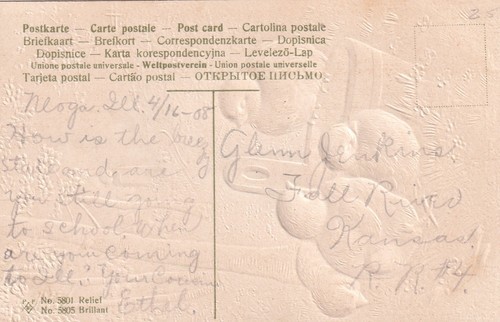 Postkarte — Carte postale — Post card — Cartolina postale
Briefkaart — Brefkort — Correspondenzkarte — Dopisnica
Dopisnice — Karta korespondencyjna — Levelező-Lap
Unione postale universale - Weltpostverein - Union postale universelle
Tarjeta postal — Cartão postal — ОТКРЫТОЕ ПИСЬМО
Neoga. Ill. 4/16-08
How is the breezy
State and are
you still going
to school. When
are you coming
to Ill." Your Cousin
Ethel.
Glenn Jenkins.
Fall River
Kansas.
R. R. #4.
No. 5801 Relief
No. 5805 Brillant